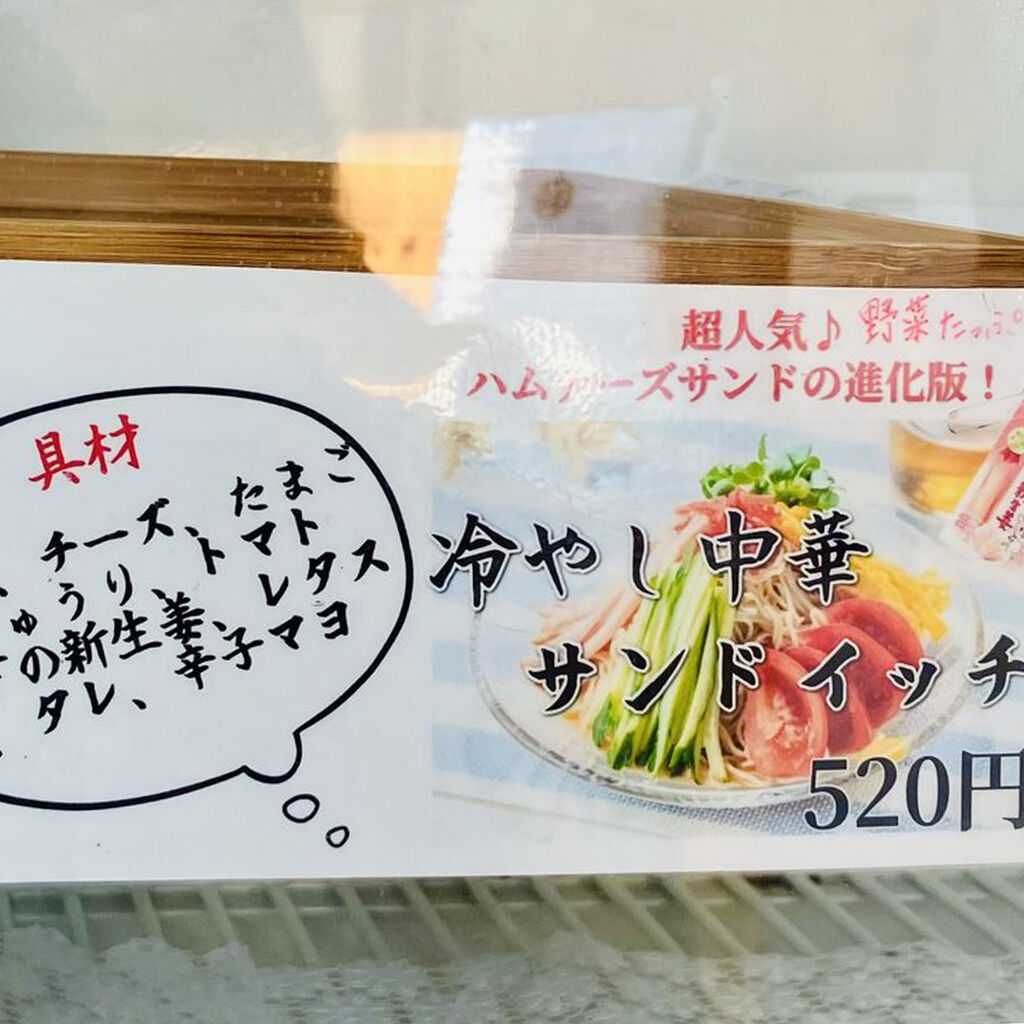 具材
、チーズ、たまご
ゅうり、トマト
の新生姜、レタス
タレ、辛子マヨ
超人気♪野菜たっぷ
ハムチーズサンドの進化版！
冷やし中華
サンドイッチ
520円